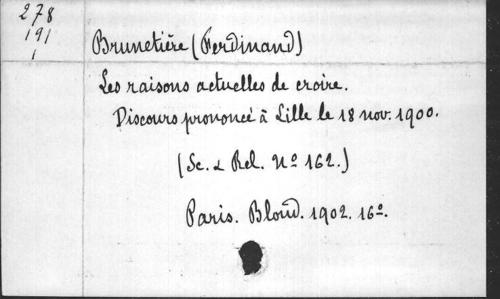 278
191
1
Brunetière (Ferdinand)
Les raisons actuelles de croire.
Discours prononcé à Lille le 18 nov. 1900.
(Sc. & Rel. No 162.)
Paris. Bloud. 1902. 16o.